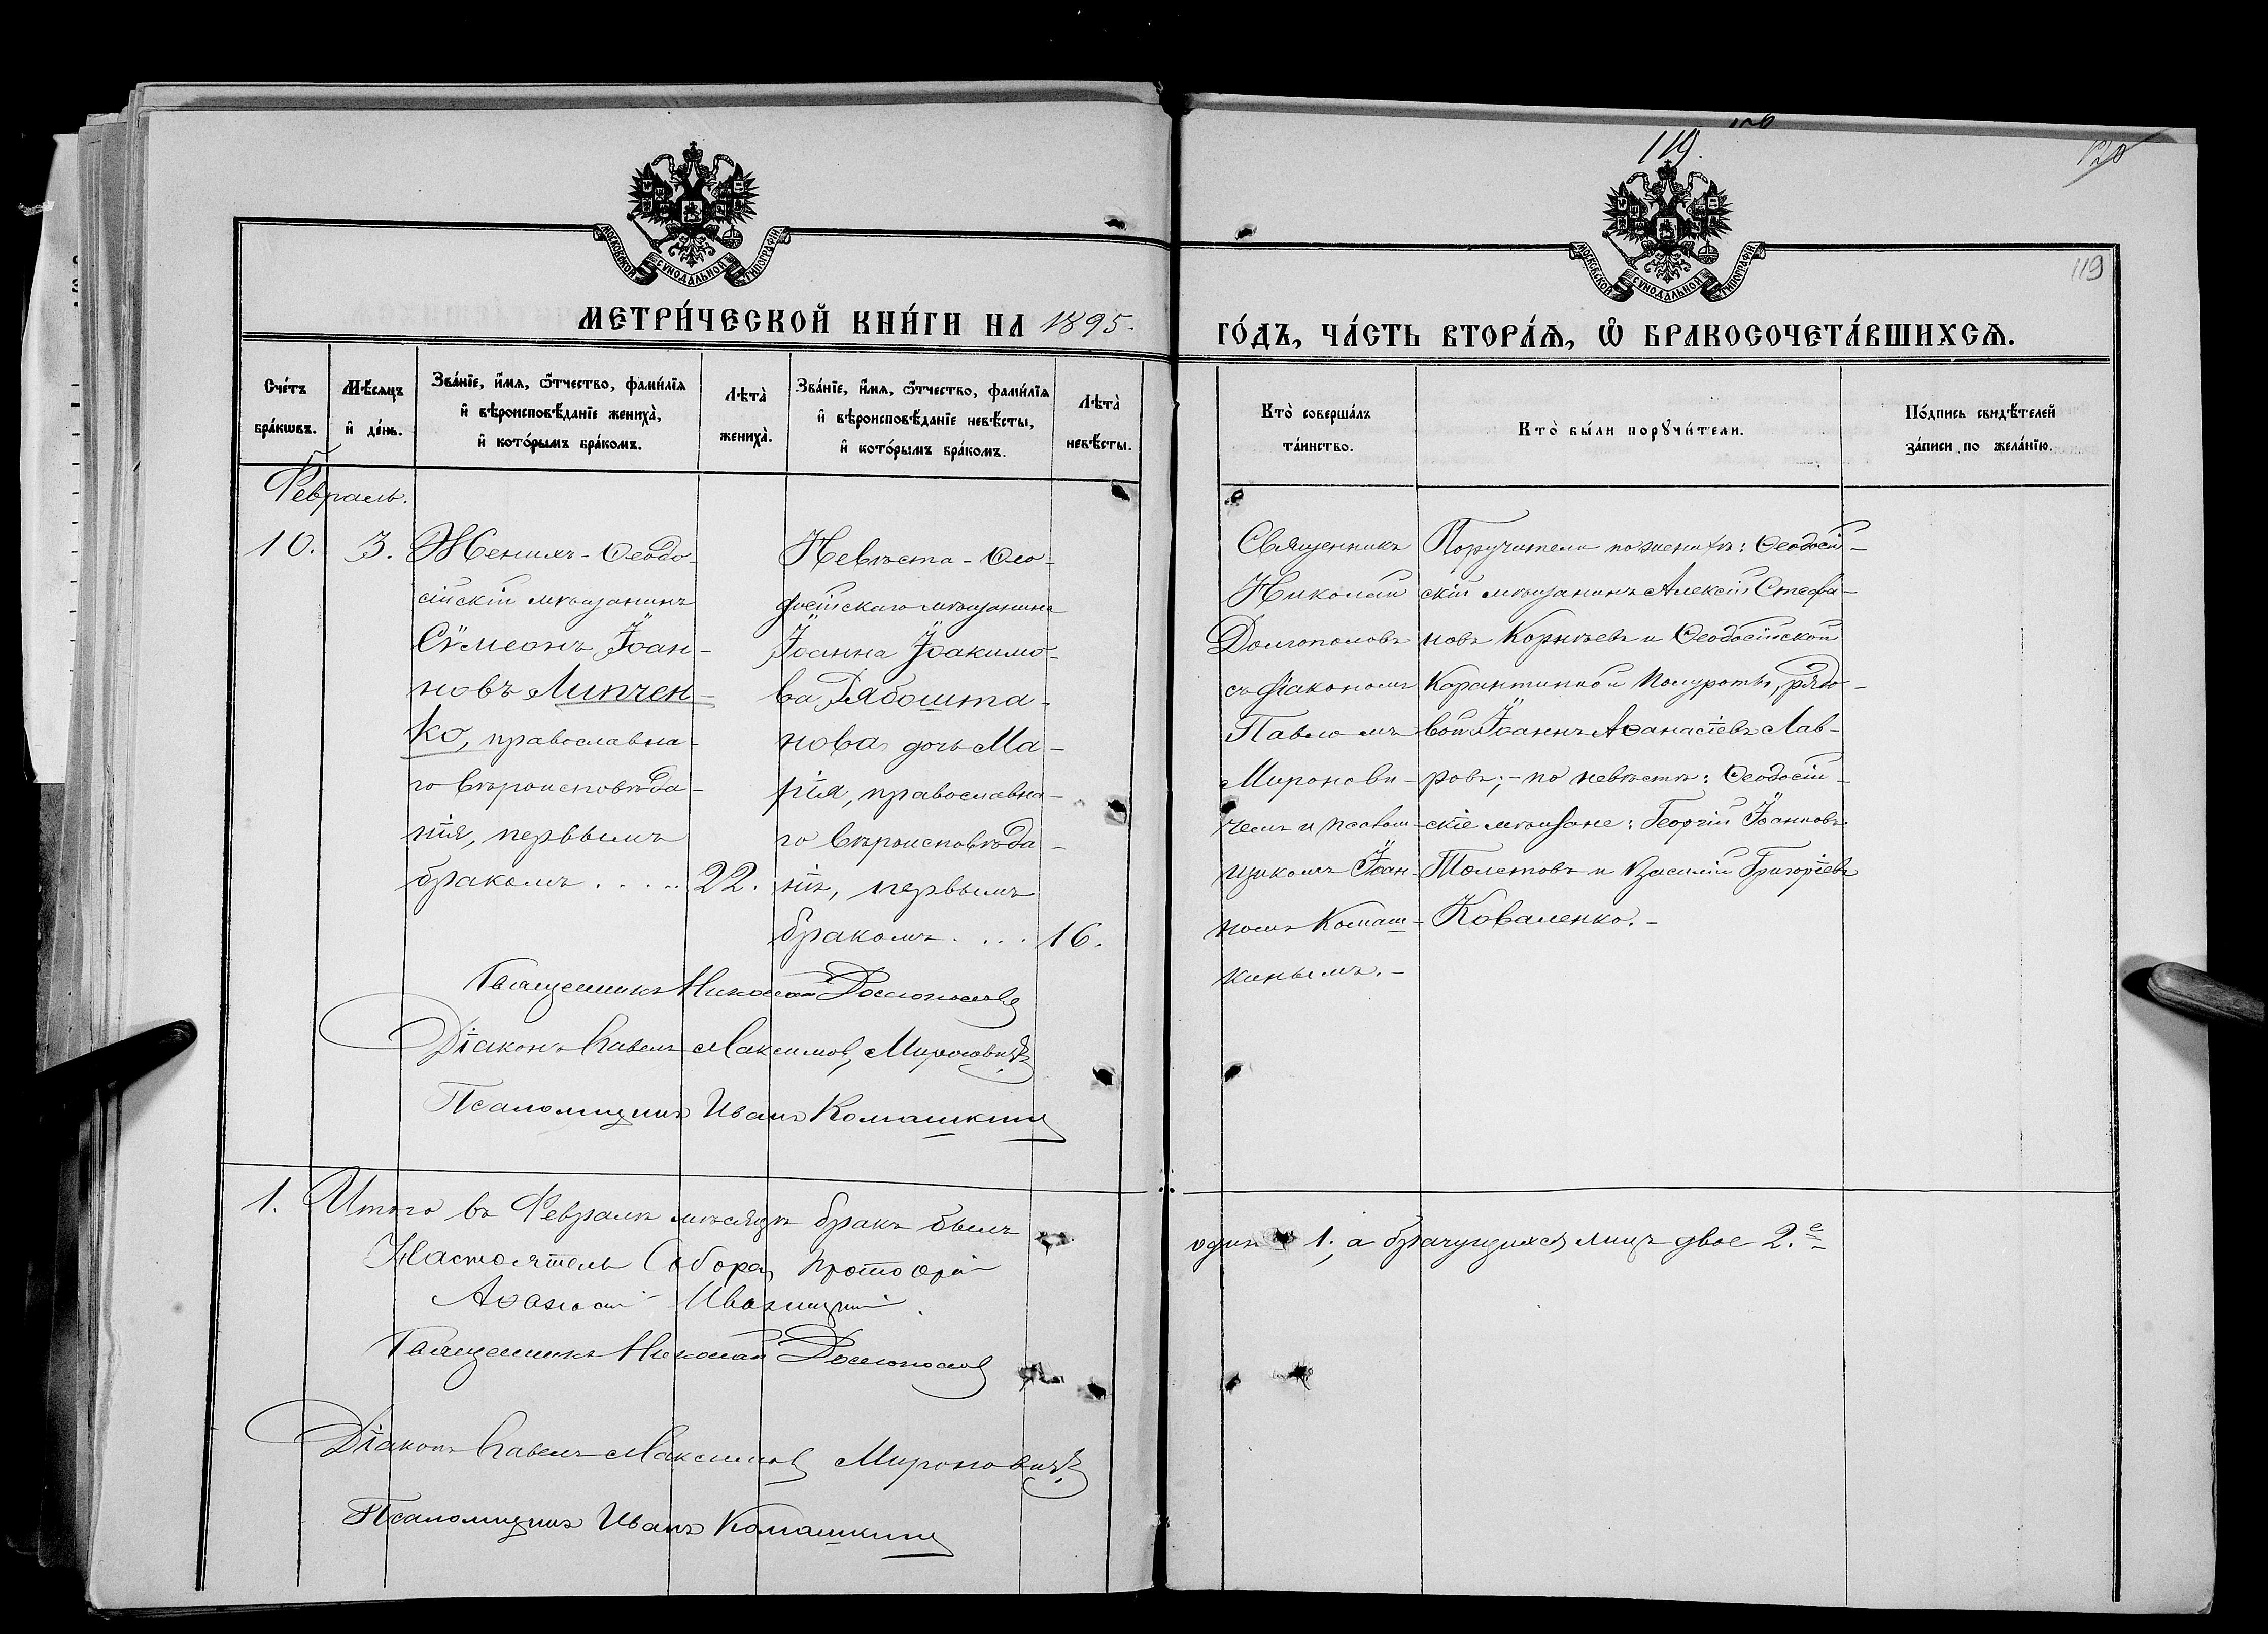 119.
120
119
МОСКОВСКОЙ СУНОДАЛЬНОЙ ТИПОГРАФІИ
МОСКОВСКОЙ СУНОДАЛЬНОЙ ТИПОГРАФІИ
МЕТРИ́ЧЕСКОЙ КНИ́ГИ НА 1895.
ГО́ДЪ, ЧА́СТЬ ВТОРА́Ѧ, Ѽ БРАКОСОЧЕТА́ВШИХСѦ.
Сче́тъ бра́кѡвъ.
Мѣ́сяцъ и҆ де́нь.
Зва́нїе, и҆́мѧ, ѻ҆́тчество, фами́лїѧ и҆ вѣроисповѣ́данїе жениха̀, и҆ кото́рымъ бра́комъ.
Лѣта̀ жениха̀.
Зва́нїе, и҆́мѧ, ѻ҆́тчество, фами́лїѧ и҆ вѣроисповѣ́данїе невѣ́сты, и҆ кото́рымъ бра́комъ.
Лѣта̀ невѣ́сты.
Кто̀ соверша́лъ та́инство.
Кто̀ бы́ли порꙋчи́тели.
По́дпись свидѣ́телей за́писи по жела́нїю.
Февраль.
10. 3.
Женихъ - Ѳеодо-
сійскій мѣщанинъ
Сѵмеонъ Іоан-
новъ Липчен-
ко, православна-
го вѣроисповѣда-
нія, первымъ
бракомъ . . . . . 22.
Невѣста - Ѳео-
досійскаго мѣщанина
Іоанна Іоакимо-
ва Рябошта-
нова дочь Ма-
рія, православна-
го вѣроисповѣда-
нія, первымъ
бракомъ. . . . 16.
Священникъ
Николай
Долгополовъ
съ діакономъ
Павломъ
Миронови-
чемъ и псалом-
щикомъ Іоан-
номъ Комаш-
кинымъ. -
Поручители по женихѣ: Ѳеодосій-
скій мѣщанинъ Алексій Стефа-
новъ Корнѣевъ и Ѳеодосійской
Карантинной Полуроты, рядо-
вой Іоаннъ Аѳанасіевъ Лав-
ровъ; - по невѣстѣ: Ѳеодосій-
скіе мѣщане: Георгій Іоанновъ
Толстовъ и Василій Григоріевъ
Коваленко. -
Священникъ Николай Долгополовъ
Діаконъ Павелъ Максимовъ Мироновичъ
Псаломщикъ Иванъ Комашкинъ
1. Итого въ Февралѣ мѣсяцѣ бракъ былъ
одинъ 1; а брачущихся лицъ двое 2.е
Настоятель Собора, протоіерей
Аѳанасій
Священникъ Николай Долгополовъ
Діаконъ Павелъ Максимовъ Мироновичъ
Псаломщикъ Иванъ Комашкинъ